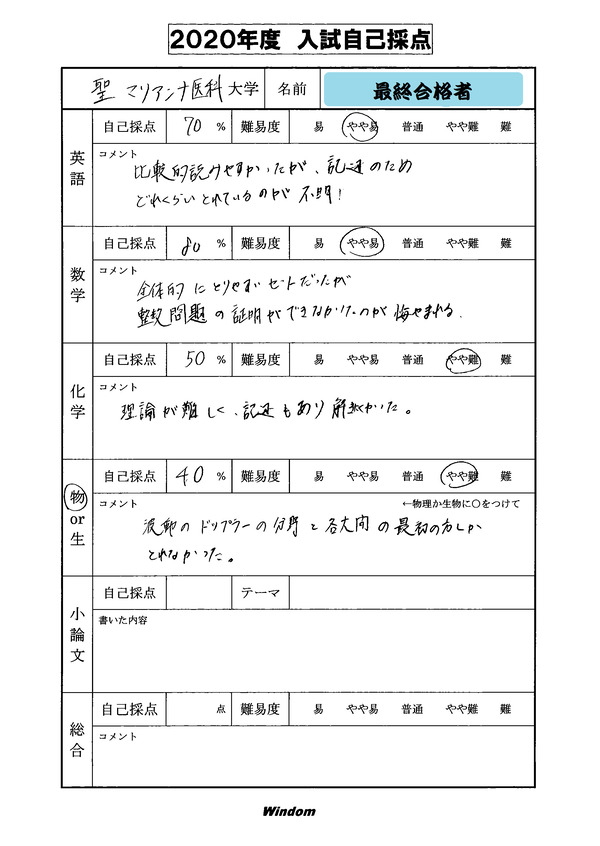 2020年度 入試自己採点
聖マリアンナ医科大学 名前 最終合格者
英語 自己採点 70 % 難易度 易 やや易 普通 やや難 難
コメント
比較的読みやすかったが、記述のため
どれくらいとれているのか不明!
数学 自己採点 80 % 難易度 易 やや易 普通 やや難 難
コメント
全体的にとりやすいセットだったが
整数問題の証明ができなかったのが悔やまれる.
化学 自己採点 50 % 難易度 易 やや易 普通 やや難 難
コメント
理論が難しく、記述もあり解きにくかった。
物or生 自己採点 40 % 難易度 易 やや易 普通 やや難 難
コメント ←物理か生物に○をつけて
波動のドップラーの分野と各大問の最初の方しか
とれなかった。
小論文 自己採点 テーマ
書いた内容
総合 自己採点 点 難易度 易 やや易 普通 やや難 難
コメント
Windom